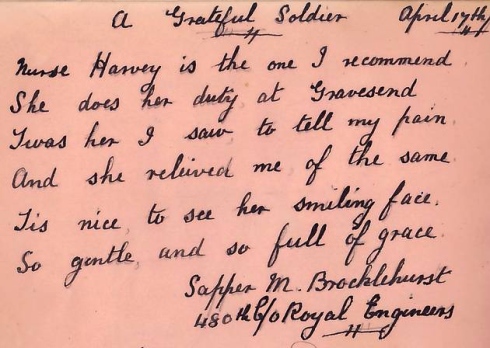 A Grateful Soldier April 17th
Nurse Harvey is the one I recommend
She does her duty at Gravesend
Twas her I saw to tell my pain
And she releived me of the same.
Tis nice to see her smiling face.
So gentle and so full of grace.
Sapper M. Brocklehurst
480th C/o Royal Engineers